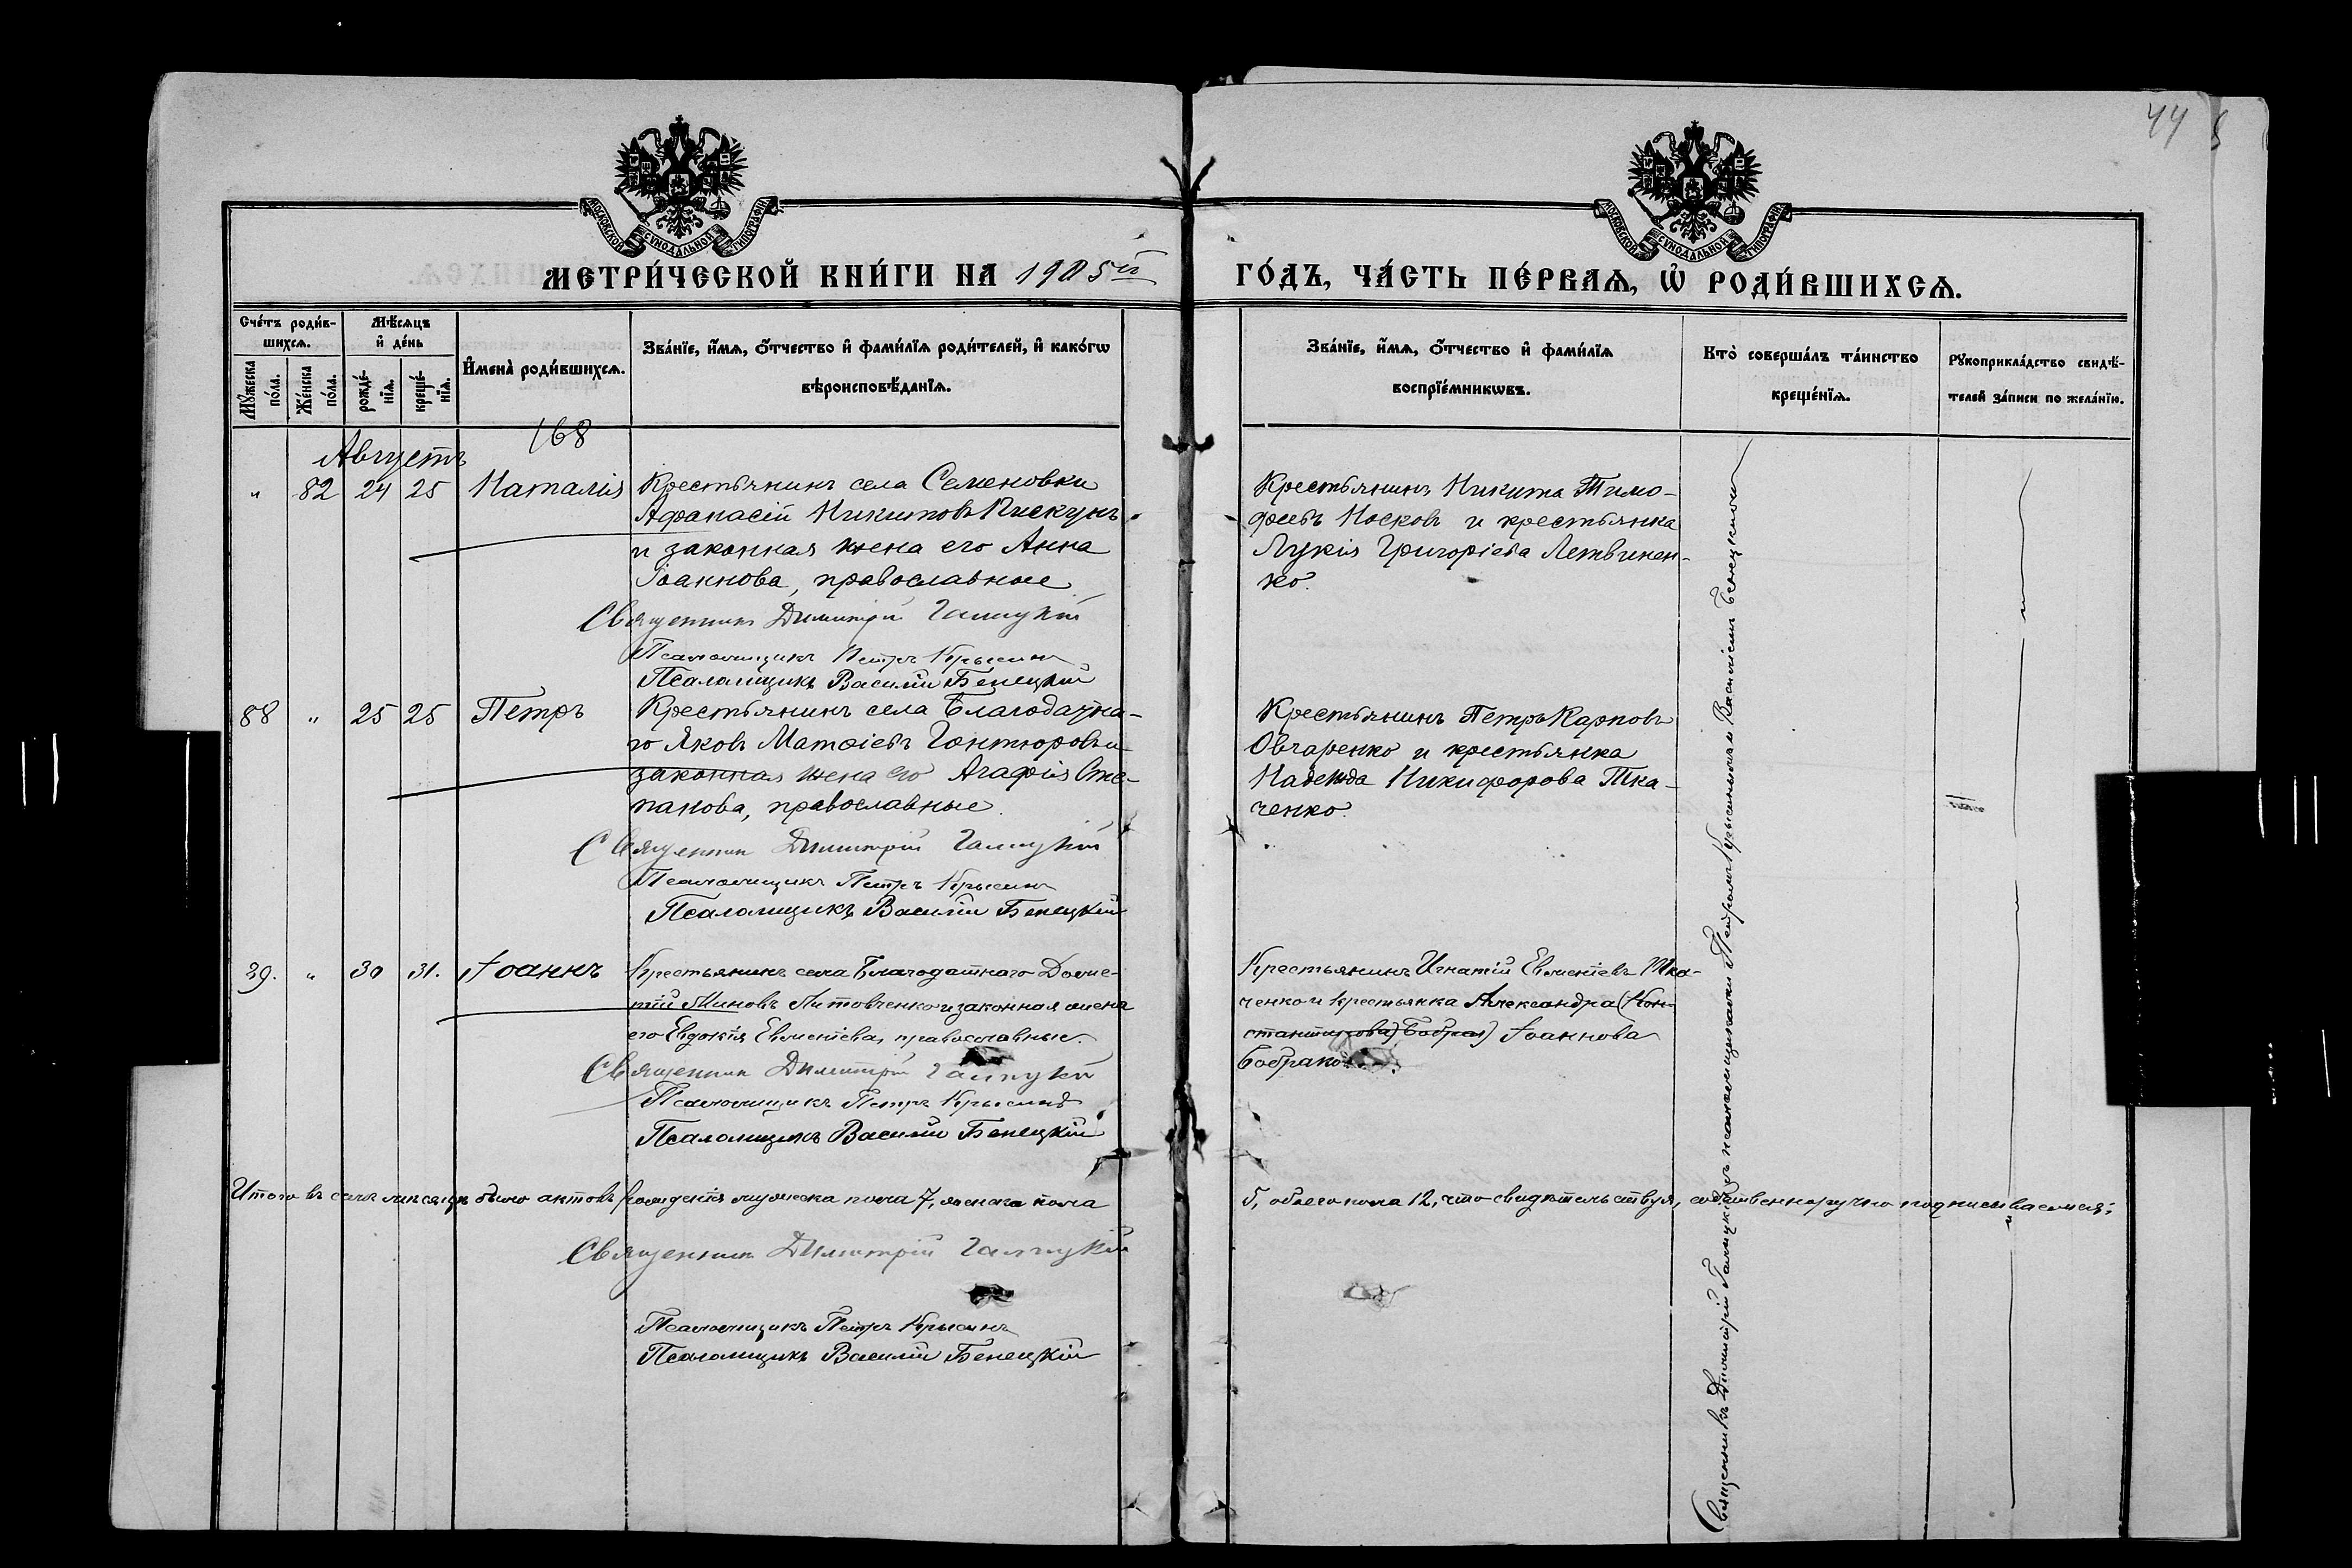 44
МОСКОВСКОЙ СУНОДАЛЬНОЙ ТИПОГРАФІИ
МОСКОВСКОЙ СУНОДАЛЬНОЙ ТИПОГРАФІИ
МЕТРИ́ЧЕСКОЙ КНИ́ГИ НА 1905й
ГО́ДЪ, ЧА́СТЬ ПЕ́РВАѦ, Ѡ҆ РОДИ́ВШИХСѦ.
Сче́тъ роди́в-
шихсѧ.
Мꙋ́жеска по́ла.
Же́нска по́ла.
Мѣ́сѧцъ
и҆ де́нь
рожде́-
нїѧ.
креще́-
нїѧ.
И҆мена̀ роди́вшихсѧ.
Зва́нїе, и҆́мѧ, ѻ҆́тчество и҆ фами́лїѧ роди́телей, и҆ како́гѡ
вѣроисповѣ́данїѧ.
Зва́нїе, и҆́мѧ, ѻ҆́тчество и҆ фами́лїѧ
воспрїе́мникѡвъ.
Кто̀ соверша́лъ та́инство
креще́нїѧ.
Рꙋкоприкла́дство свидѣ́-
телей за́писи по жела́нїю.
168
Августъ
" 82 24 25 Наталія
Крестьянинъ села Семеновки
Афанасій Никитовъ Пискунъ
и законная жена его Анна
Іоаннова, православные
Священникъ Димитрій Галицкій
Псаломщикъ Петръ Крысинъ
Псаломщикъ Василій Бенецкій
Крестьянинъ Никита Тимо-
феевъ Носковъ и крестьянка
Лукія Григоріева Летвинен-
ко.
88 " 25 25 Петръ
Крестьянинъ села Благодатна-
го Яковъ Матѳіевъ Гонтюровъ и
законная жена его Агафія Сте-
панова, православные.
Священникъ Димитрій Галицкій
Псаломщикъ Петръ Крысинъ
Псаломщикъ Василій Бенецкій
Крестьянинъ Петръ Карповъ
Овчаренко и крестьянка
Надежда Никифорова Тка-
ченко.
39. " 30 31. Іоаннъ
Крестьянинъ села Благодатнаго Доме-
тій Миновъ Литовченко и законная жена
его Евдокія Евменіева, православные.
Священникъ Димитрій Галицкій
Псаломщикъ Петръ Крысинъ
Псаломщикъ Василій Бенецкій
Крестьянинъ Игнатій Евменіевъ Тка-
ченко и крестьянка Александра (Кон-
стантинова) Бобрак) Іоаннова
Бобракова.
Итого въ семъ мѣсяцѣ было актовъ рожденія мужеска пола 7, женска пола
5, обоего пола 12, что свидѣтельствуя, собственноручно подписываемся:
Священникъ Димитрій Галицкій
Псаломщикъ Петръ Крысинъ
Псаломщикъ Василій Бенецкій
Священникъ Димитрій Галицкій съ псаломщиками Петромъ Крысинымъ и Василіемъ Бенецкимъ